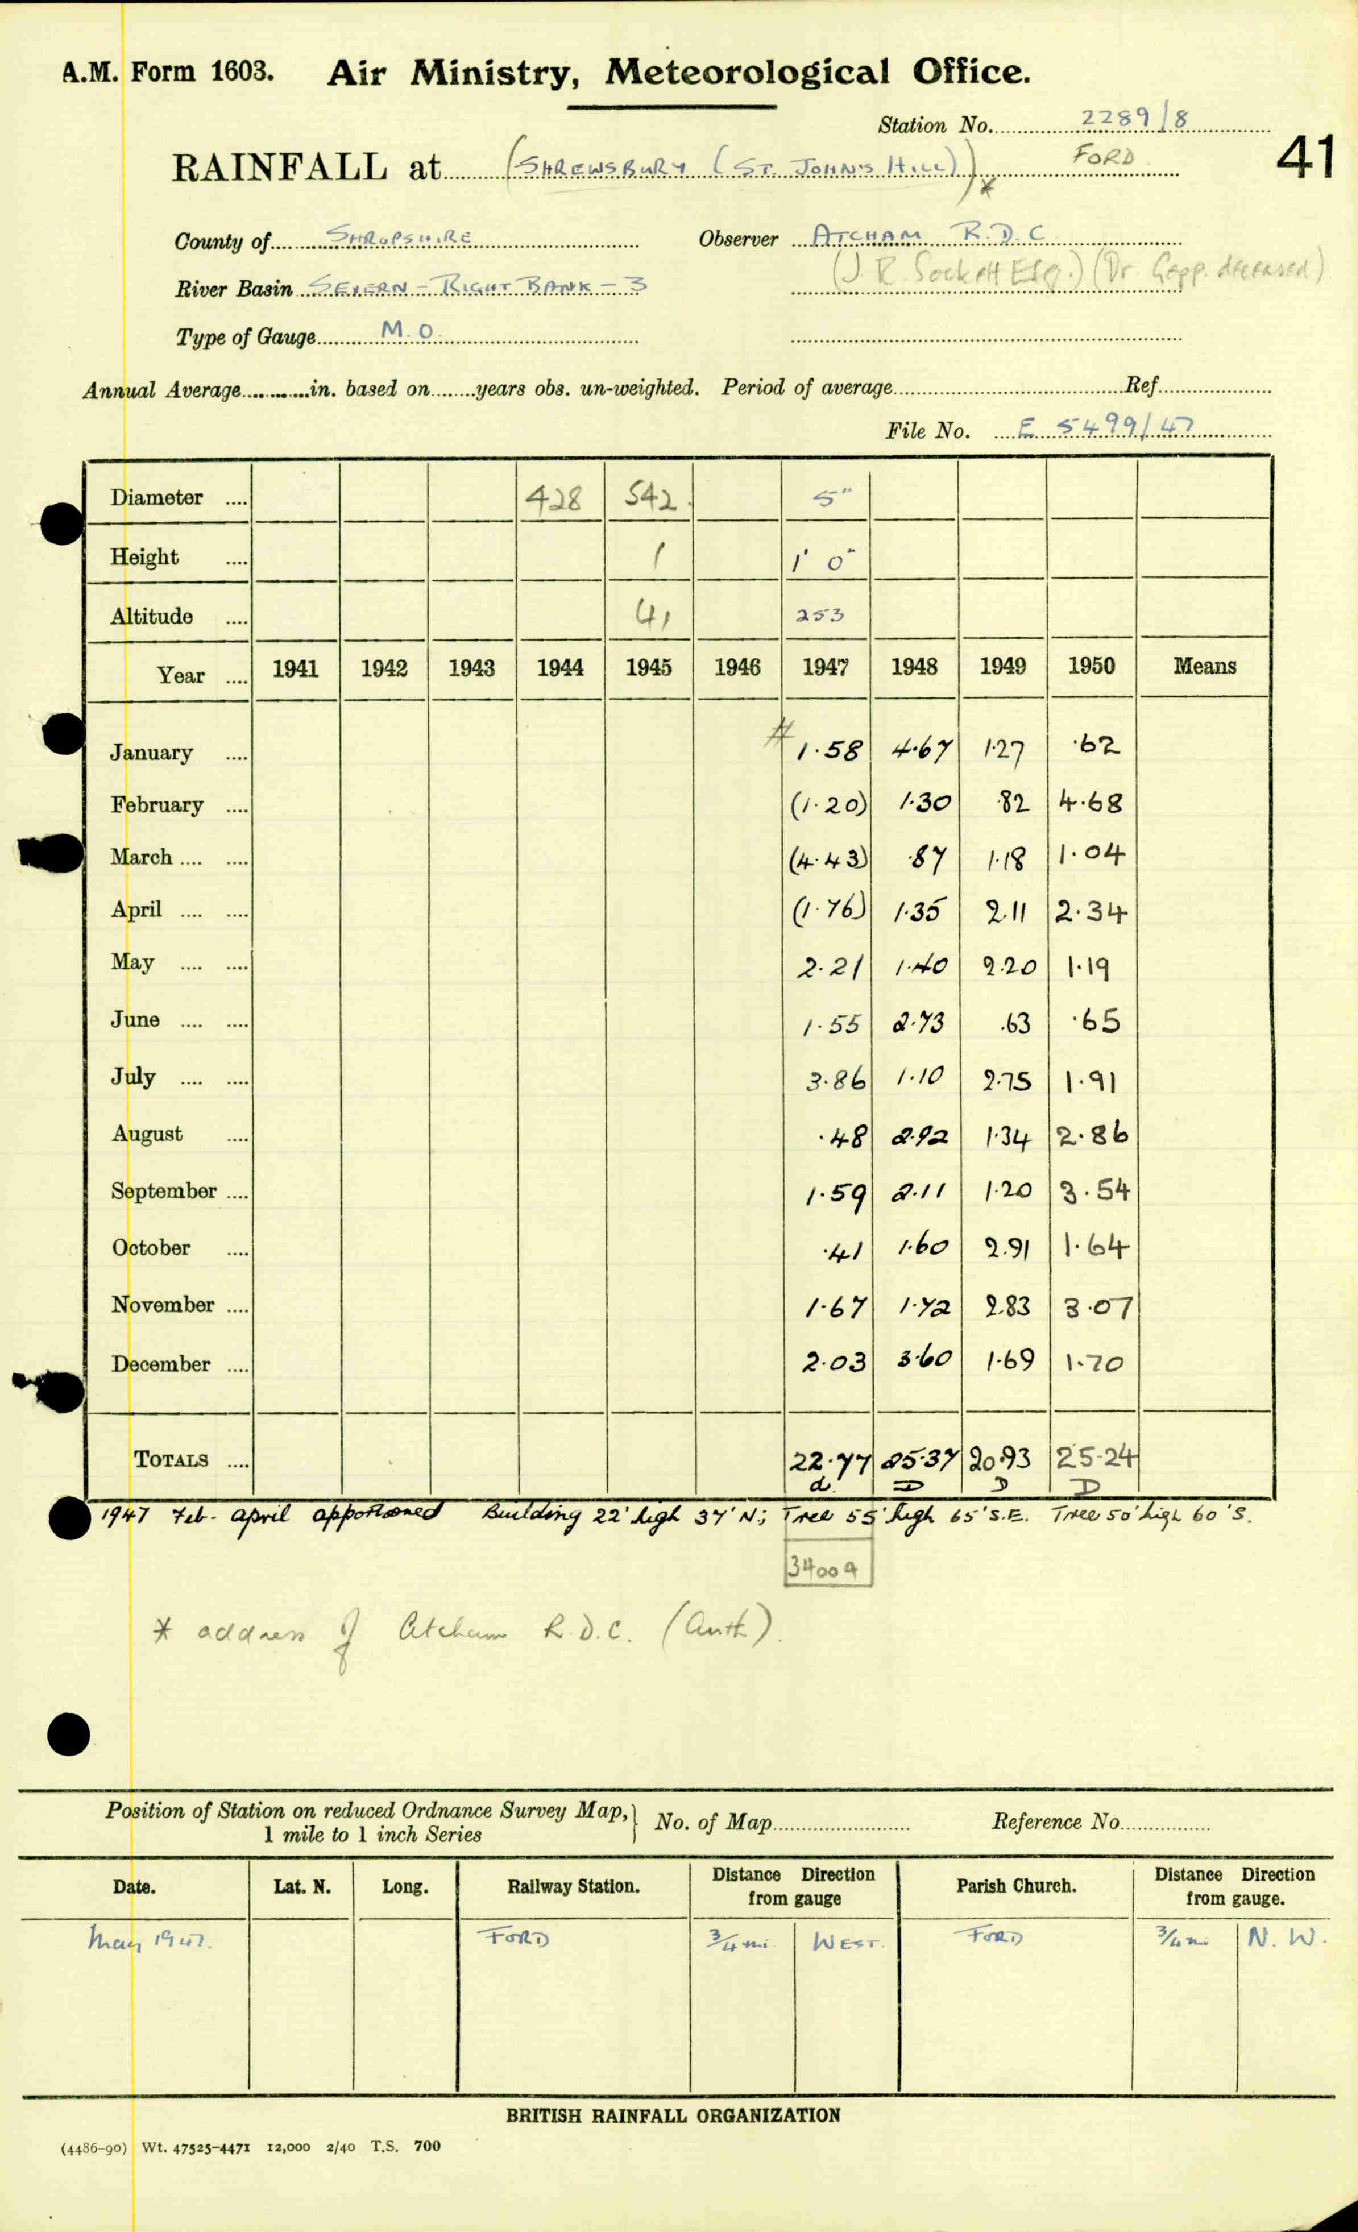 A.M. Form 1603. Air Ministry, Meteorological Office.
Station No. 2289/8
RAINFALL at (SHREWSBURY (ST. JOHN'S HILL))* FORD
41
County of SHROPSHIRE Observer ATCHAM R.D.C.
(J. R. Sockett Esq.) (Dr. Gepp. deceased)
River Basin SEVERN - RIGHT BANK - 3
Type of Gauge M.O.
Annual Average in. based on years obs. un-weighted. Period of average Ref
File No. E 5499/47
Diameter 428 542 5"
Height 1 1' 0"
Altitude 41 253
Year 1941 1942 1943 1944 1945 1946 1947 1948 1949 1950 Means
January # 1.58 4.67 1.27 .62
February (1.20) 1.30 .82 4.68
March (4.43) .87 1.18 1.04
April (1.76) 1.35 2.11 2.34
May 2.21 1.40 2.20 1.19
June 1.55 2.73 .63 .65
July 3.86 1.10 2.75 1.91
August .48 2.92 1.34 2.86
September 1.59 2.11 1.20 3.54
October .41 1.60 2.91 1.64
November 1.67 1.72 2.83 3.07
December 2.03 3.60 1.69 1.70
TOTALS 22.77 25.37 20.93 25.24
d. D D D
1947 Feb - april apportioned Building 22' high 37' N; Tree 55' high 65' S.E. Tree 50' high 60' S.
34009
* address of Atcham R.D.C. (Auth).
Position of Station on reduced Ordnance Survey Map, 1 mile to 1 inch Series } No. of Map Reference No.
Date. Lat. N. Long. Railway Station. Distance Direction from gauge Parish Church. Distance Direction from gauge.
May 1947. FORD 3/4 mi. WEST. FORD 3/4 m. N.W.
BRITISH RAINFALL ORGANIZATION
(4486-90) Wt. 47525-4471 12,000 2/40 T.S. 700